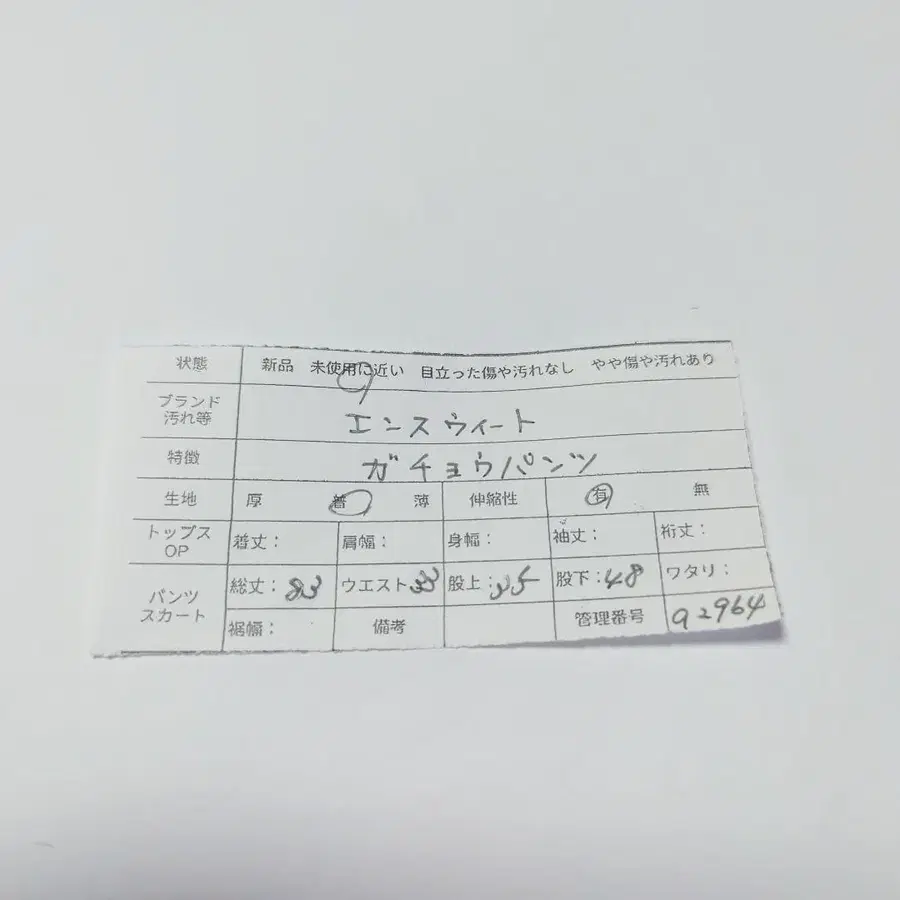 状態 新品 未使用に近い 目立った傷や汚れなし やや傷や汚れあり
ブランド
汚れ等 エンスウィート
特徴 ガチョウパンツ
生地 厚 普 薄 伸縮性 有 無
トップス
OP 着丈: 肩幅: 身幅: 袖丈: 裄丈:
パンツ
スカート 総丈: 83 ウエスト 33 股上: 35 股下: 48 ワタリ:
裾幅: 備考 管理番号 92964